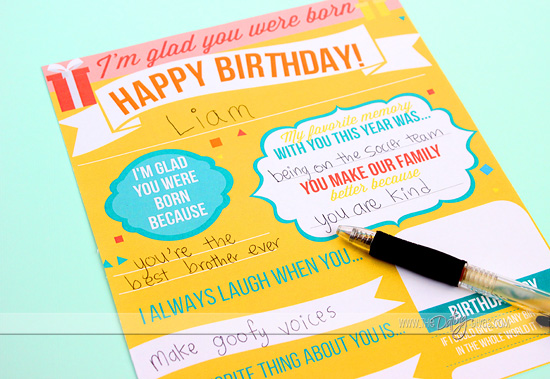 I'm glad you were born
HAPPY BIRTHDAY!
Liam
I'M GLAD
YOU WERE
BORN
BECAUSE
you're the
best brother ever
My favorite memory
WITH YOU THIS YEAR WAS...
being on the soccer team
YOU MAKE OUR FAMILY
better because
you are kind
I ALWAYS LAUGH WHEN YOU...
make goofy voices
RITE THING ABOUT YOU IS...
BIRTHDAY
IN THE WHOLE WORLD